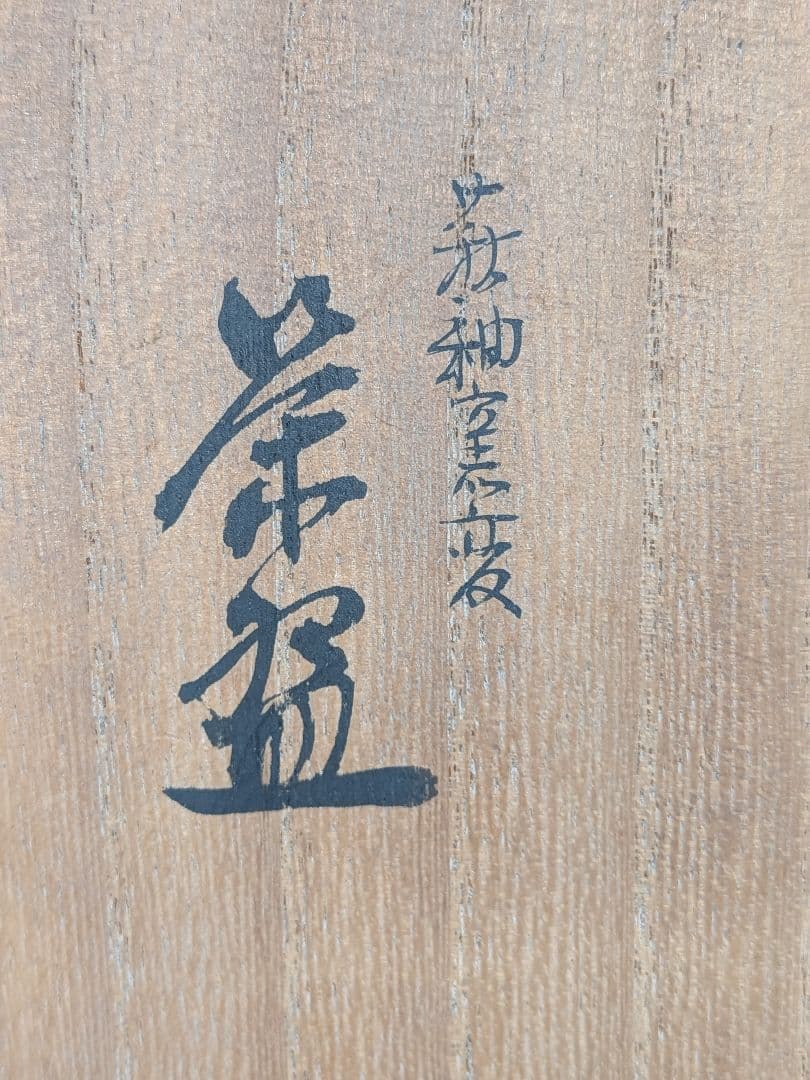 萩釉窯変
茶盌